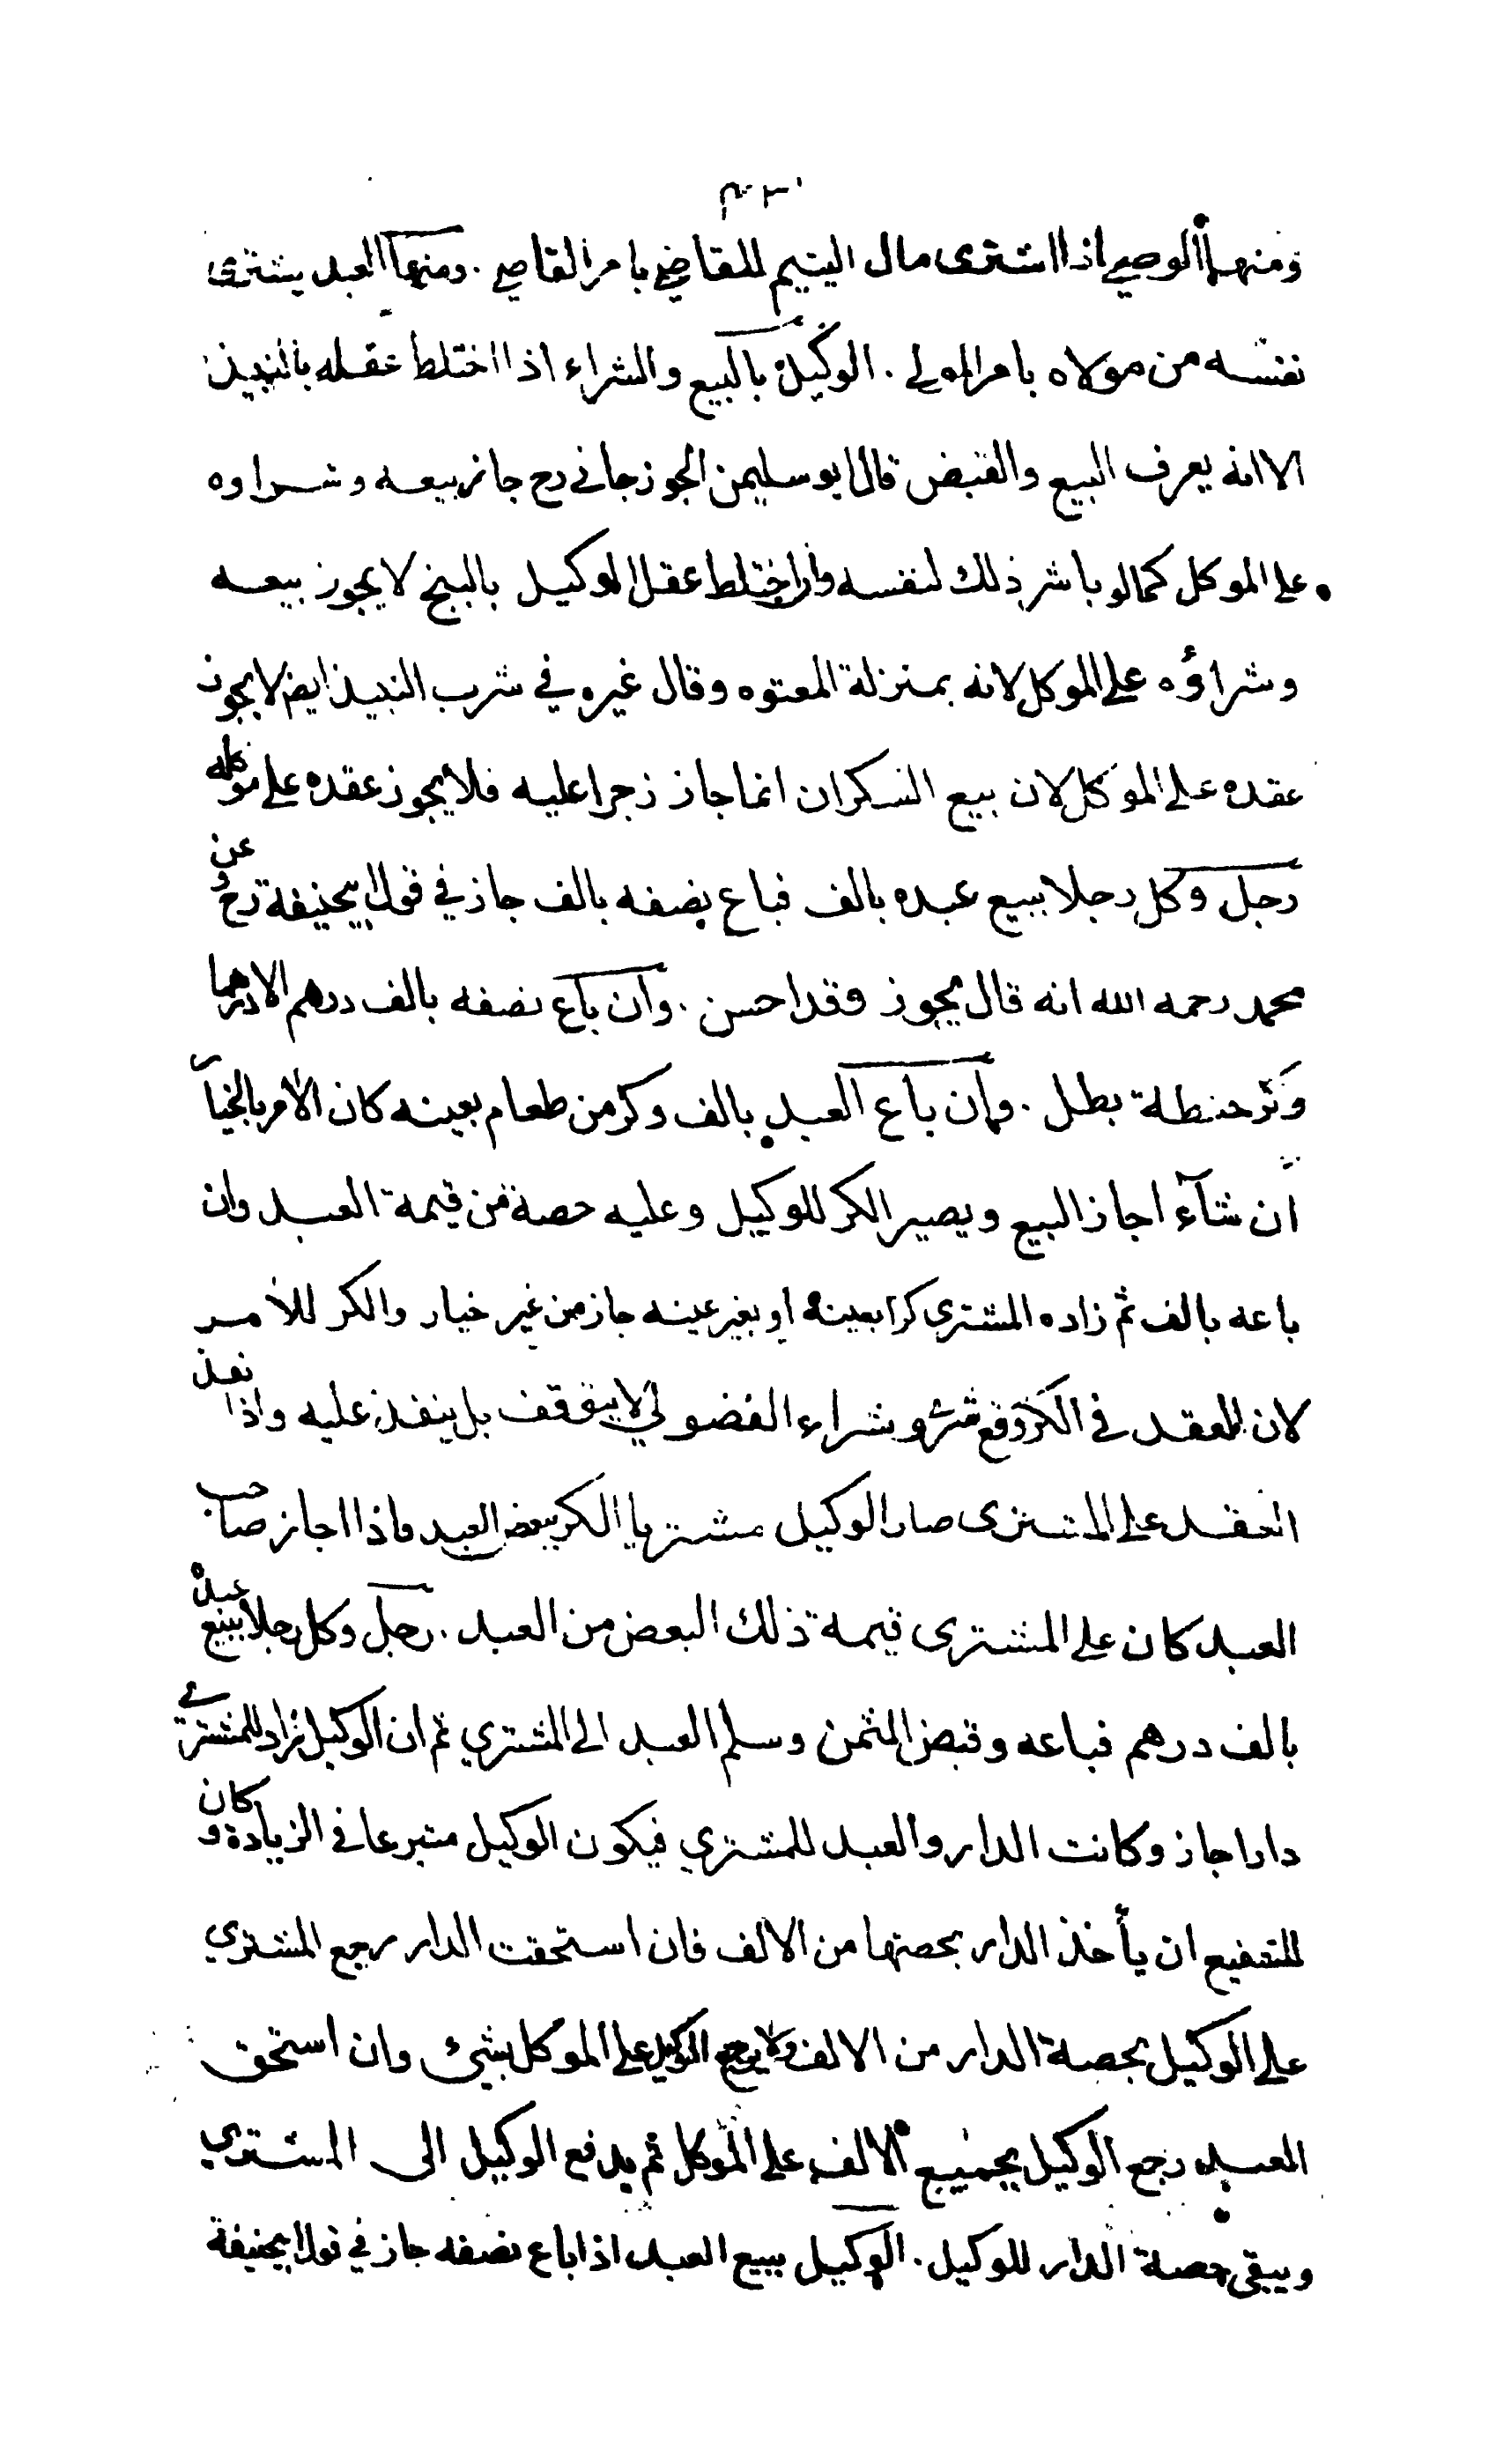 ومنها الوصي اذا اشترى مال اليتيم للقاضي بامر القاضي . ومنها العبد يشترى
نفسه من مولاه بامر المولى . الوكيل بالبيع والشراء اذا اختلط عقله بالنبيذ
الا انه يعرف البيع والقبض قال ابو سليمن الجوزجاني رح جاز بيعه وشراوه
على الموكل كما لو باشر ذلك لنفسه واذا اختلط عقل الوكيل بالبنج لا يجوز بيعه
وشراؤه على الموكل لانه بمنزلة المعتوه وقال غيره في شرب النبيذ ايض لا يجوز
عقده على الموكل لان بيع السكران انما جاز زجرا عليه فلا يجوز عقده على موكله
رجل وكل رجلا ببيع عبده بالف فباع نصفه بالف جاز في قول ابيحنيفة رح وعن
محمد رحمه الله انه قال يجوز وقد احسن . وان باع نصفه بالف درهم الا درهما
وكر حنطة بطل . وان باع العبد بالف وكر من طعام بعينه كان الآمر بالخيار
ان شآء اجاز البيع ويصير الكر للوكيل وعليه حصة من قيمة العبد وان
باعه بالف ثم زاده المشتري كرا بعينه او بغير عينه جاز من غير خيار والكر للآمر
لان العقد في الكر وقع شراء وشراء الفضولي لا يتوقف بل ينفذ عليه واذا نفذ
العقد على المشترى صار الوكيل مشتريا الكر ببعض العبد فاذا اجاز صاحب
العبد كان على المشترى قيمة ذلك البعض من العبد . رجل وكل رجلا ببيع عبده
بالف درهم فباعه وقبض الثمن وسلم العبد الى المشتري ثم ان الوكيل زاد للمشتري
دارا جاز وكانت الدار والعبد للمشتري فيكون الوكيل متبرعا في الزيادة وكان
للشفيع ان يأخذ الدار بحصتها من الالف فان استحقت الدار رجع المشتري
على الوكيل بحصة الدار من الالف ولا يرجع الوكيل على الموكل بشيئ وان استحق
العبد رجع الوكيل بجميع الالف على الموكل ثم يدفع الوكيل الى المشتري
ويبقى حصة الدار للوكيل . الوكيل ببيع العبد اذا باع نصفه جاز في قول ابيحنيفة